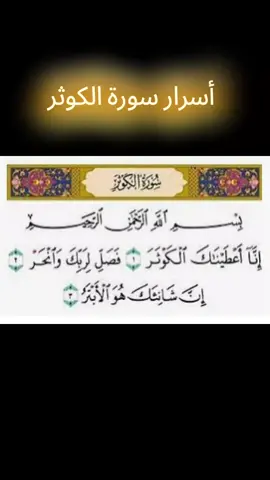 أسرار سورة الكوثر
سُورَةُ الكَوْثَرِ
بِسْمِ اللَّهِ الرَّحْمَٰنِ الرَّحِيمِ
إِنَّا أَعْطَيْنَاكَ الْكَوْثَرَ ١ فَصَلِّ لِرَبِّكَ وَانْحَرْ ٢
إِنَّ شَانِئَكَ هُوَ الْأَبْتَرُ ٣